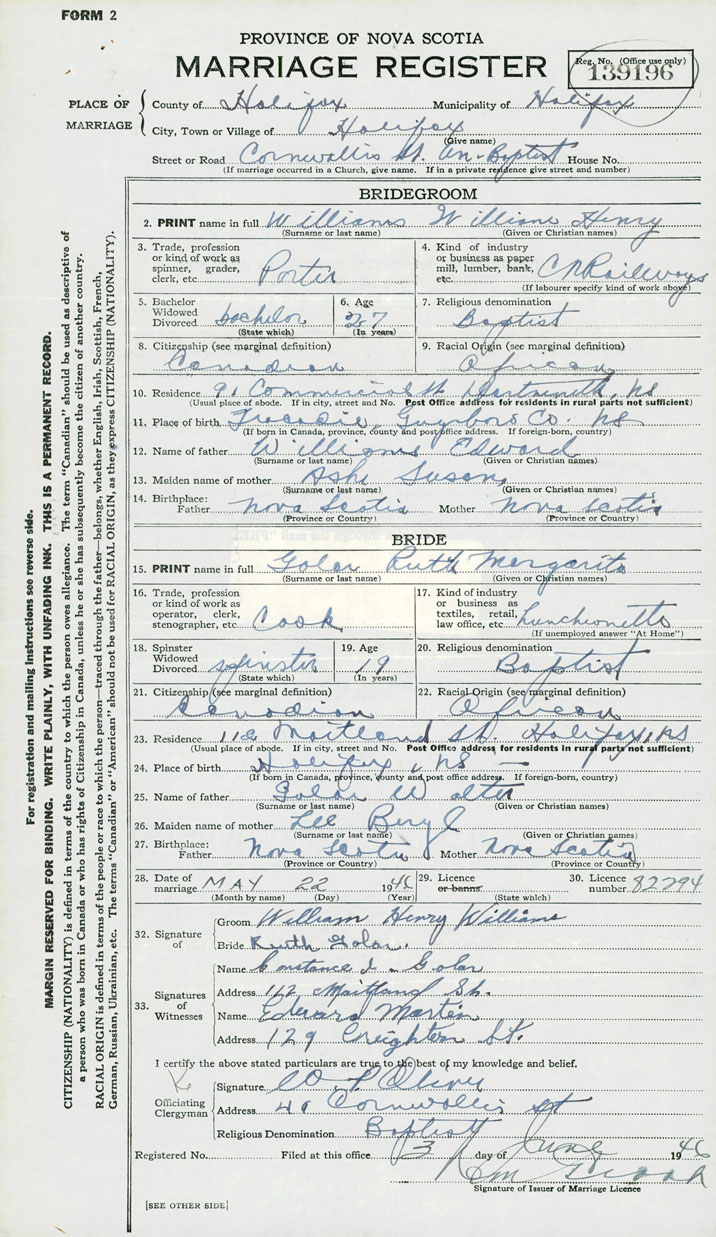 FORM 2
PROVINCE OF NOVA SCOTIA
MARRIAGE REGISTER
Reg. No. (Office use only)
139196
PLACE OF MARRIAGE
County of Halifax Municipality of Halifax
City, Town or Village of Halifax
(Give name)
Street or Road Cornwallis St. Un. Baptist House No.
(If marriage occurred in a Church, give name. If in a private residence give street and number)
BRIDEGROOM
2. PRINT name in full Williams William Henry
(Surname or last name) (Given or Christian names)
3. Trade, profession or kind of work as spinner, grader, clerk, etc. Porter
4. Kind of industry or business as paper mill, lumber, bank, etc. CNRailways
(If labourer specify kind of work above)
5. Bachelor Widowed Divorced bachelor
(State which)
6. Age 27
(In years)
7. Religious denomination
Baptist
8. Citizenship (see marginal definition)
Canadian
9. Racial Origin (see marginal definition)
African
10. Residence 91 Commercial St Dartmouth, NS
(Usual place of abode. If in city, street and No. Post Office address for residents in rural parts not sufficient)
11. Place of birth Tracadie, Guysboro Co. NS
(If born in Canada, province, county and post office address. If foreign-born, country)
12. Name of father Williams Edward
(Surname or last name) (Given or Christian names)
13. Maiden name of mother Ashe Susan
(Surname or last name) (Given or Christian names)
14. Birthplace: Father Nova Scotia Mother Nova Scotia
(Province or Country) (Province or Country)
BRIDE
15. PRINT name in full Golar Ruth Margarita
(Surname or last name) (Given or Christian names)
16. Trade, profession or kind of work as operator, clerk, stenographer, etc. Cook
17. Kind of industry or business as textiles, retail, law office, etc. Luncheonette
(If unemployed answer "At Home")
18. Spinster Widowed Divorced spinster
(State which)
19. Age 19
(In years)
20. Religious denomination
Baptist
21. Citizenship (see marginal definition)
Canadian
22. Racial Origin (see marginal definition)
African
23. Residence Maitland St. Halifax, NS
(Usual place of abode. If in city, street and No. Post Office address for residents in rural parts not sufficient)
24. Place of birth Halifax, NS —
(If born in Canada, province, county and post office address. If foreign-born, country)
25. Name of father Golar Walter
(Surname or last name) (Given or Christian names)
26. Maiden name of mother Lee Beryl
(Surname or last name) (Given or Christian names)
27. Birthplace: Father Nova Scotia Mother Nova Scotia
(Province or Country) (Province or Country)
28. Date of marriage MAY 22 1946
(Month by name) (Day) (Year)
29. Licence or banns
(State which)
30. Licence number 82294
32. Signature of
Groom William Henry Williams
Bride Ruth Golar.
33. Signatures of Witnesses
Name Constance J. Golar
Address 112 Maitland St.
Name Edward Martin
Address 129 Creighton St.
I certify the above stated particulars are true to the best of my knowledge and belief,
Officiating Clergyman
Signature W P Oliver
Address Cornwallis St
Religious Denomination Baptist
Registered No. Filed at this office 3 day of June 1946
Signature of Issuer of Marriage Licence
[SEE OTHER SIDE]
For registration and mailing instructions see reverse side.
MARGIN RESERVED FOR BINDING. WRITE PLAINLY, WITH UNFADING INK. THIS IS A PERMANENT RECORD.
CITIZENSHIP (NATIONALITY) is defined in terms of the country to which the person owes allegiance. The term "Canadian" should be used as descriptive of
a person who was born in Canada or who has rights of Citizenship in Canada, unless he or she has subsequently become the citizen of another country.
RACIAL ORIGIN is defined in terms of the people or race to which the person—traced through the father—belongs, whether English, Irish, Scottish, French,
German, Russian, Ukrainian, etc. The terms "Canadian" or "American" should not be used for RACIAL ORIGIN, as they express CITIZENSHIP (NATIONALITY).